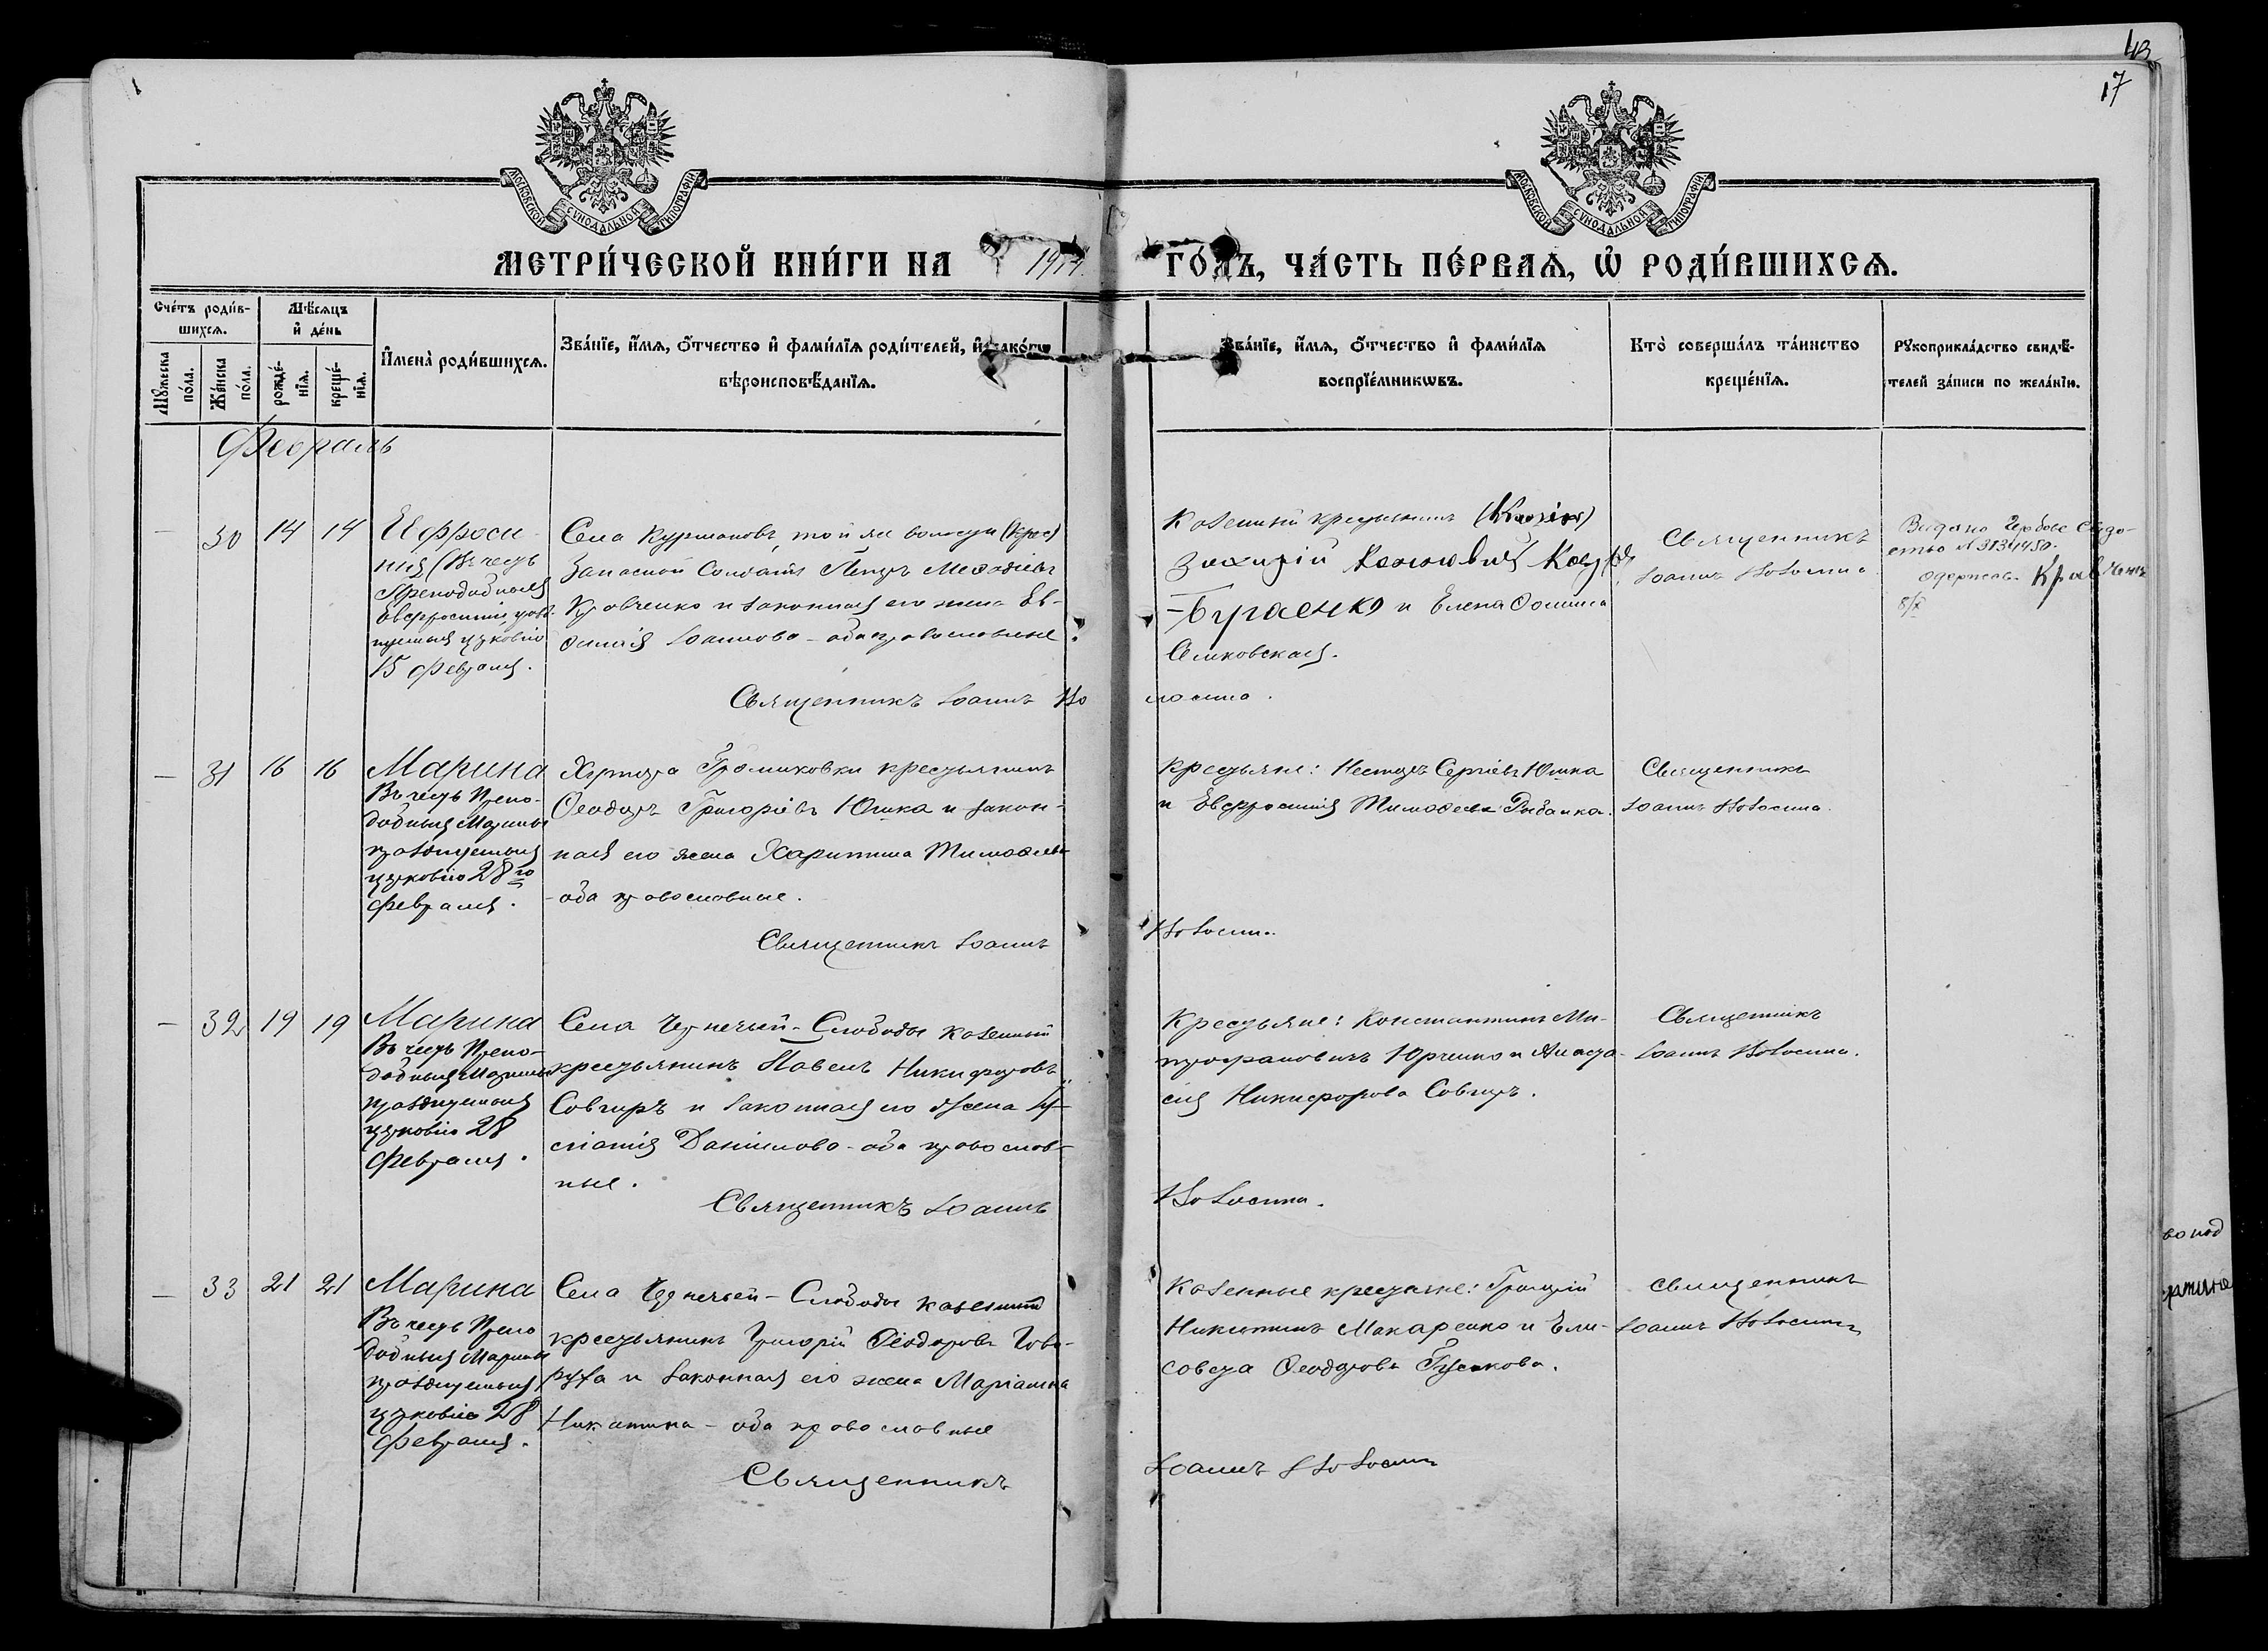 43
17
МОСКОВСКОЙ СѴНОДАЛЬНОЙ ТИПОГРАФІИ
МОСКОВСКОЙ СѴНОДАЛЬНОЙ ТИПОГРАФІИ
МЕТРИ́ЧЕСКОЙ КНИ́ГИ НА 1914 ГО́ДЪ, ЧА́СТЬ ПЕ́РВАѦ, Ѡ҆ РОДИ́ВШИХСѦ.
Сче́тъ роди́в-
шихсѧ.
Мꙋ́жеска по́ла.
Же́нска по́ла.
Мѣ́сѧцъ
и҆ де́нь
рожде́-
нїѧ.
креще́-
нїѧ.
И҆мена̀ роди́вшихсѧ.
Зва́нїе, и҆́мѧ, ѻ҆́тчество и҆ фами́лїѧ роди́телей, и҆
вѣроисповѣ́данїѧ.
Зва́нїе, и҆́мѧ, ѻ҆́тчество и҆ фами́лїѧ
воспрїе́мникѡвъ.
Кто̀ соверша́лъ та́инство
креще́нїѧ.
Рꙋкоприкла́дство свидѣ́-
телей за́писи по жела́нїю.
Февраль
— 30 14 14
Ефроси
нія (Въ честь
Преподобныя
Евфросиніи, празд-
нуемыя церковію
15 февраля.
Села Курмановъ, той же волости (Крас)
Запасной Солдатъ Петръ Меѳодіевъ
Кравченко и законная его жена Ев-
ѳимія Іоаннова - оба православные.
Священникъ Іоаннъ
Казенный крестьянинъ
Захарій
Бураенко и Елена Ѳомина
Семковская.
Священникъ
Іоаннъ
Видано Гербове Свідо-
ство № 3134450.
одержав. Кравченк
8/X
— 31 16 16
Марина
Въ честь Препо-
добныя Марины
празднуемыя
церковію 28го
февраля.
Хутора Громиковки крестьянинъ
Ѳеодоръ Григоріевъ Юшка и закон-
ная его жена Харитина Тимоѳеева
- оба православные.
Священникъ Іоаннъ
Крестьяне: Несторъ Сергіевъ Юшка
и Евфросинія Тимоѳеева Рыбалка.
Священникъ
Іоаннъ
— 32 19 19
Марина
Въ честь Препо-
добныя Марины
празднуемыя
церковію 28
февраля.
Села Чернечьей-Слободы казенный
крестьянинъ Павелъ Никифоровъ
Совгиръ и законная его жена
Даніилова - оба православ-
ные.
Священникъ Іоаннъ
Крестьяне: Константинъ Ми-
трофановичъ Юрченко и Анаста-
сія Никифорова Совгиръ.
Священникъ
Іоаннъ
— 33 21 21
Марина
Въ честь Препо
добныя Марины
празднуемыя
церковію 28
февраля.
Села Чернечьей-Слободы казенный
крестьянинъ Григорій Ѳеодоровъ Гова-
руха и законная его жена Маріанна
Никитина - оба православные
Священникъ
Іоаннъ
Казенные крестьяне: Григорій
Никитинъ Макаренко и Ели-
савета Ѳеодорова Гуськова.
Священникъ
Іоаннъ